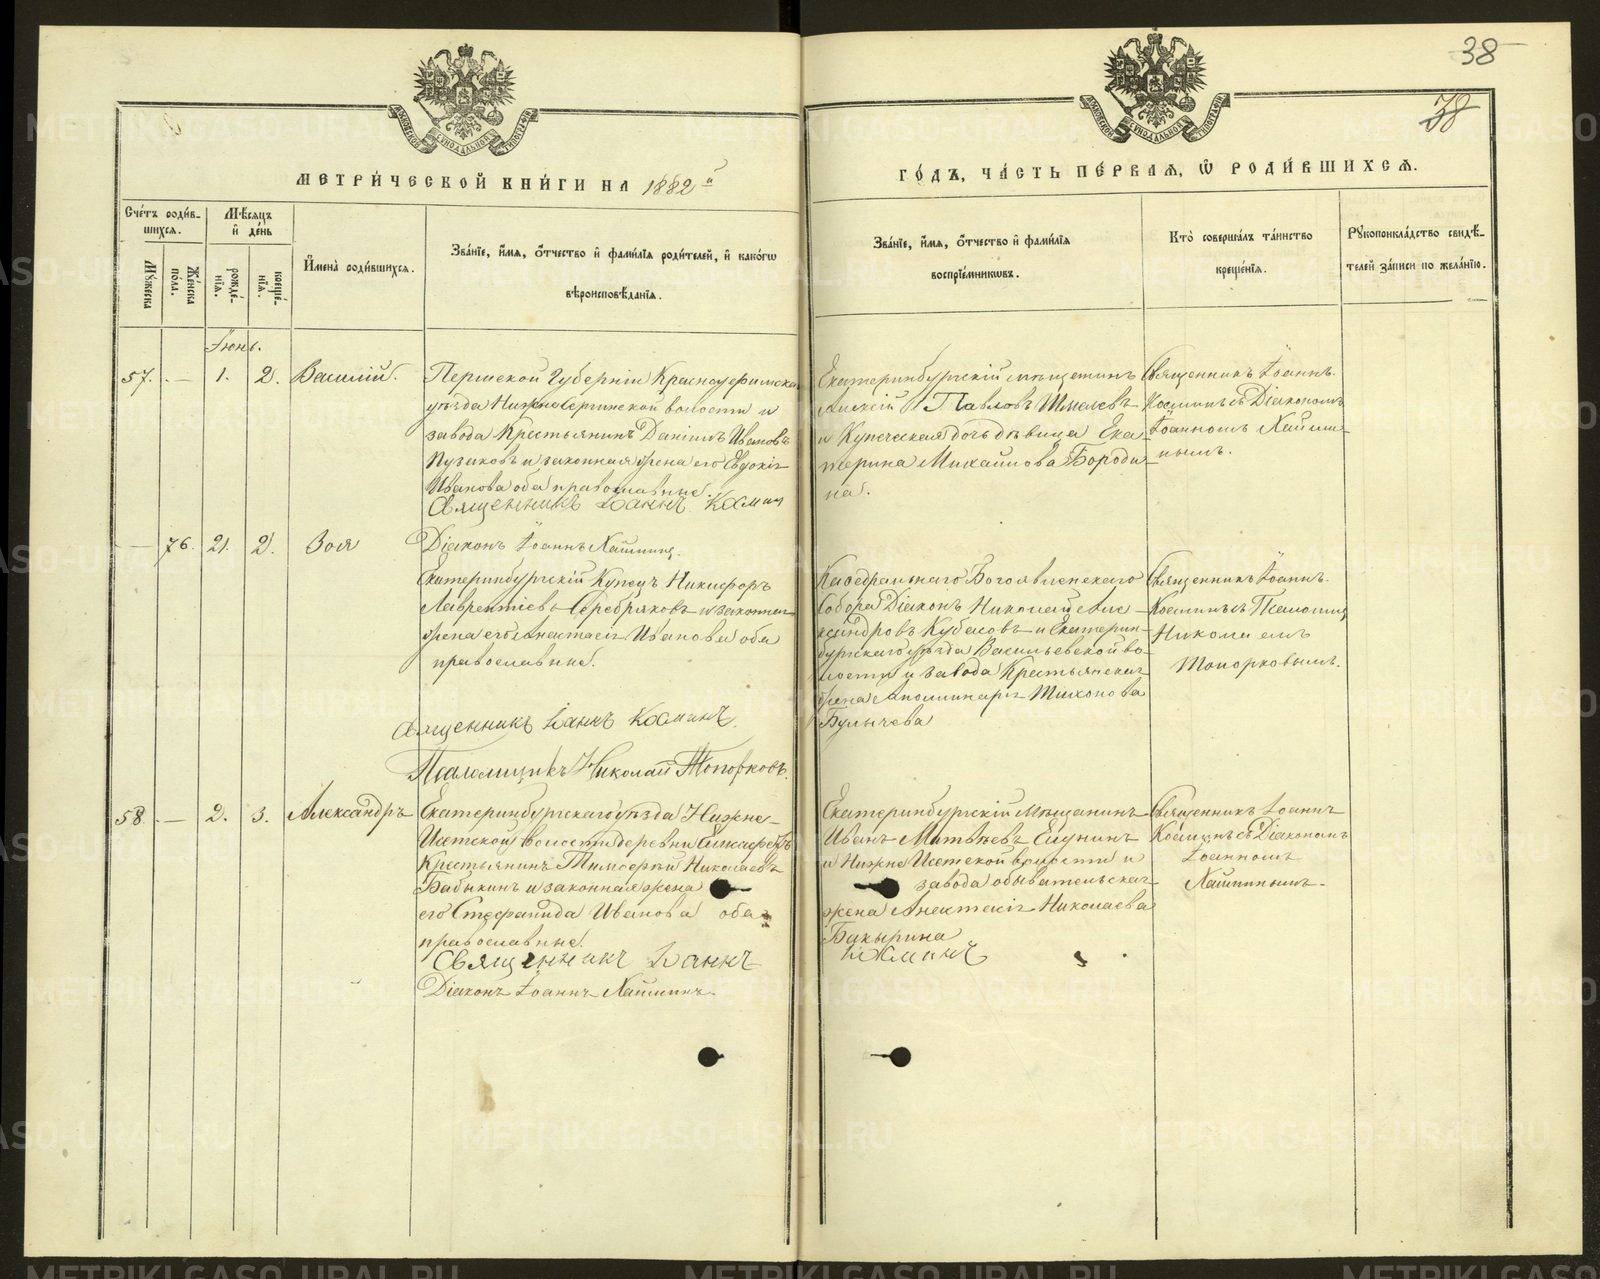 38
38
МОСКОВСКОЙ СѴНОДАЛЬНОЙ ТИПОГРАФІИ
МОСКОВСКОЙ СѴНОДАЛЬНОЙ ТИПОГРАФІИ
МЕТРИ́ЧЕСКОЙ КНИ́ГИ НА 1882 й
ГО́ДЪ, ЧА́СТЬ ПЕ́РВАЯ, Ѽ РОДИ́ВШИХСЯ.
Сче́тъ роди́в-
шихся.
Мѣ́сяцъ
и҆ де́нь
Му́жеска
Же́нска
пола.
рожде́-
нїя.
креще́-
нїя.
И҆мена̀ роди́вшихся.
Зва́нїе, и҆́мя, ѻ҆́тчество и҆ фами́лїя роди́телей, и҆ како́гѡ
вѣроисповѣ́данїя.
Зва́нїе, и҆́мя, ѻ҆́тчество и҆ фами́лїя
воспрїе́мникѡвъ.
Кто̀ соверша́лъ та́инство
креще́нїя.
Рꙋкоприкла́дство свидѣ́-
телей за́писи по жела́нїю.
Іюнь.
57. — 1. 2. Василій.
Пермской Губерніи Красноуфимска
уѣзда Нижне Сергинской волости и
завода Крестьянинъ Даніилъ Ивановъ
Пузаковъ и законная жена его Евдокія
Иванова оба православные.
Священникъ Іоаннъ Косминъ
Діаконъ Іоаннъ Хаймин
Екатеринбургскій мѣщанинъ
Алексій Павловъ Шмелевъ
и Купеческая дочь дѣвица Ека-
терина Михаилова Бороди-
на.
Священникъ Іоаннъ
Косминъ съ Діакономъ
Іоанномъ Хайми-
нымъ.
— 76. 21. 2. Зоя
Екатеринбургскій Купецъ Никифоръ
Лаврентіевъ Серебряковъ и законная
жена его Анастасія Иванова оба
православные.
Священникъ Іоаннъ Косминъ.
Псаломщикъ Николай Топорковъ.
Кафедральнаго Богоявленскаго
Собора Діаконъ Николай Але-
ксандровъ Кубасовъ и Екатерин-
бургскаго уѣзда Васильевской во-
лости и завода Крестьянская
жена Аполлинарія Тихонова
Булычева
Священникъ Іоаннъ
Косминъ съ Псаломщ
Николаемъ
Топорковымъ.
58. — 2. 3. Александръ
Екатеринбургскаго уѣзда Нижне-
Исетской волости деревни
Крестьянинъ Тимофей Николаевъ
Бабыкинъ и законная жена
его Стефанида Иванова оба
православные.
Священникъ Іоаннъ
Діаконъ Іоаннъ Хайминъ.
Екатеринбургскій Мѣщанинъ
Иванъ Матвѣевъ Елунинъ
и Нижне Исетской волости и
завода обывательская
жена Анастасія Николаева
Бакырина
Косминъ
Священникъ Іоаннъ
Косминъ съ Діакономъ
Іоанномъ
Хайминымъ.
METRIKI.GASO-URAL.RU